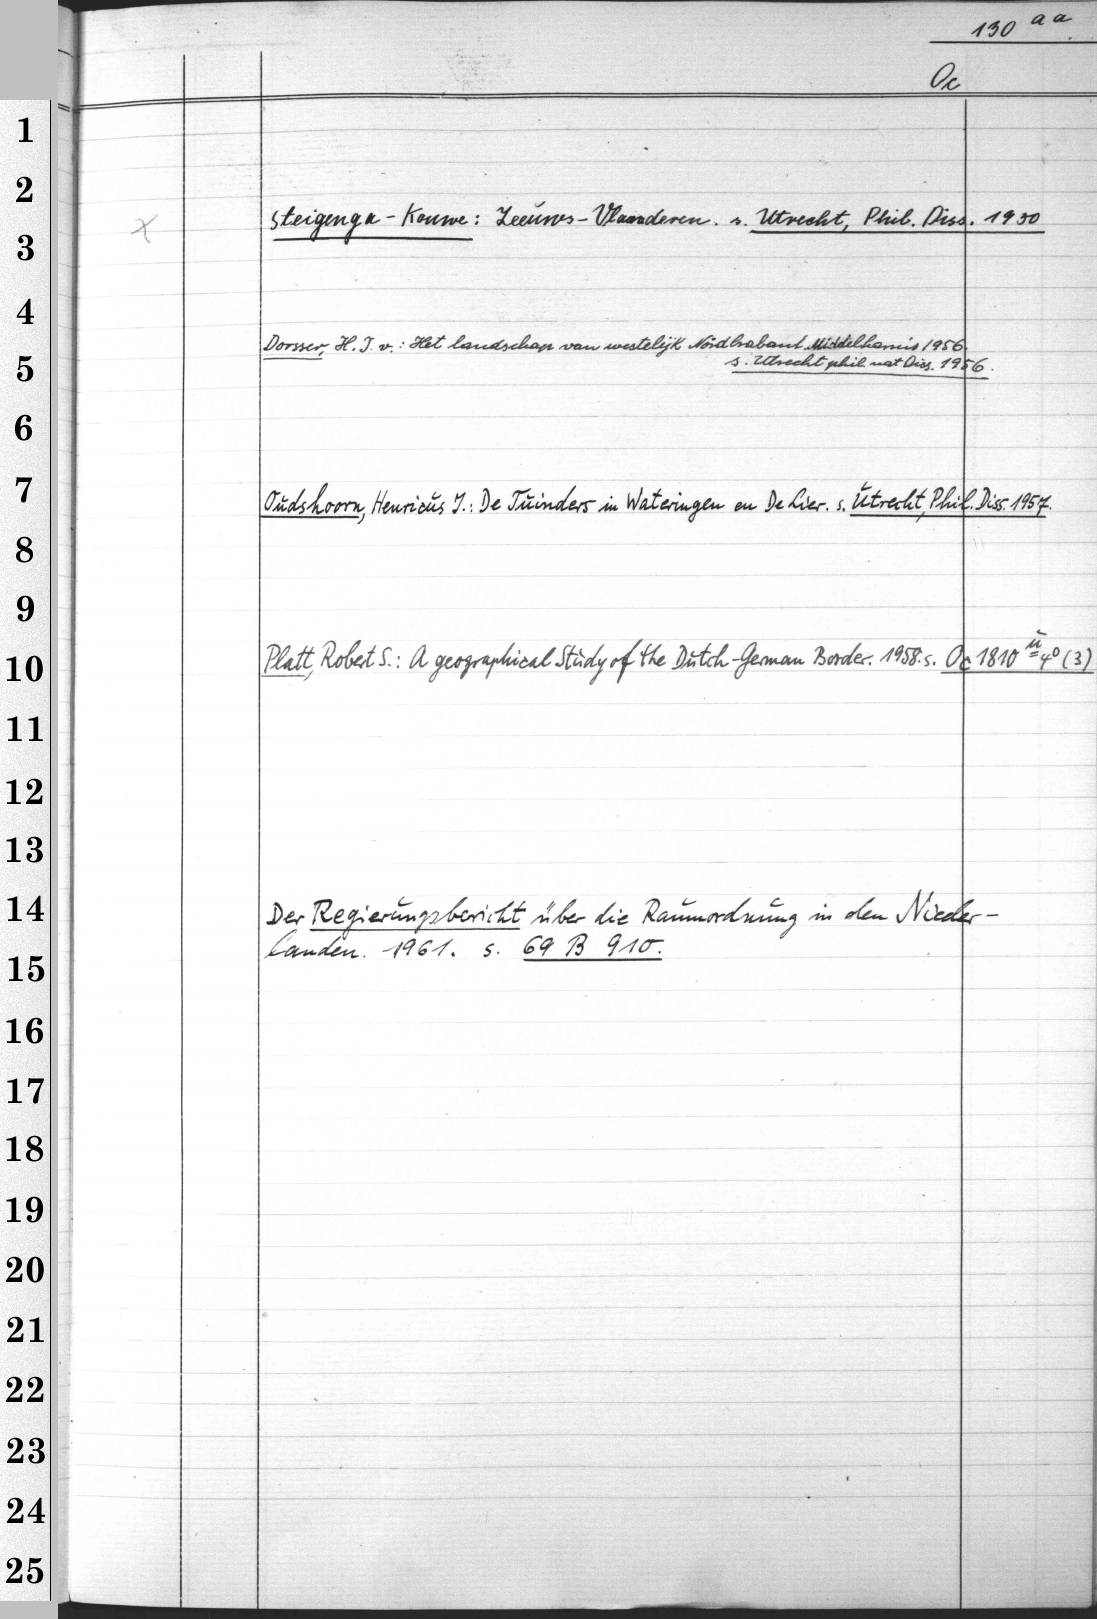 130 aa
Oc
1
2
Steigenga-Kouwe: Zeeuws-Vlaanderen. s. Utrecht, Phil. Diss. 1950
3
4
Dorsser, H. J. v.: Het landschap van westelijk Nordbrabant Middelharnis 1956.
5
s. Utrecht phil nat Diss. 1956.
6
7
Oudshoorn, Henricus J.: De Tuinders in Wateringen en De Lier. s. Utrecht, Phil. Diss. 1957.
8
9
Platt, Robert S.: A geographical Study of the Dutch-German Border. 1958. s. Oc 1810 u 4° (3)
10
11
12
13
14
Der Regierungsbericht über die Raumordnung in den Nieder-
landen. 1961. s. 69 B 910.
15
16
17
18
19
20
21
22
23
24
25